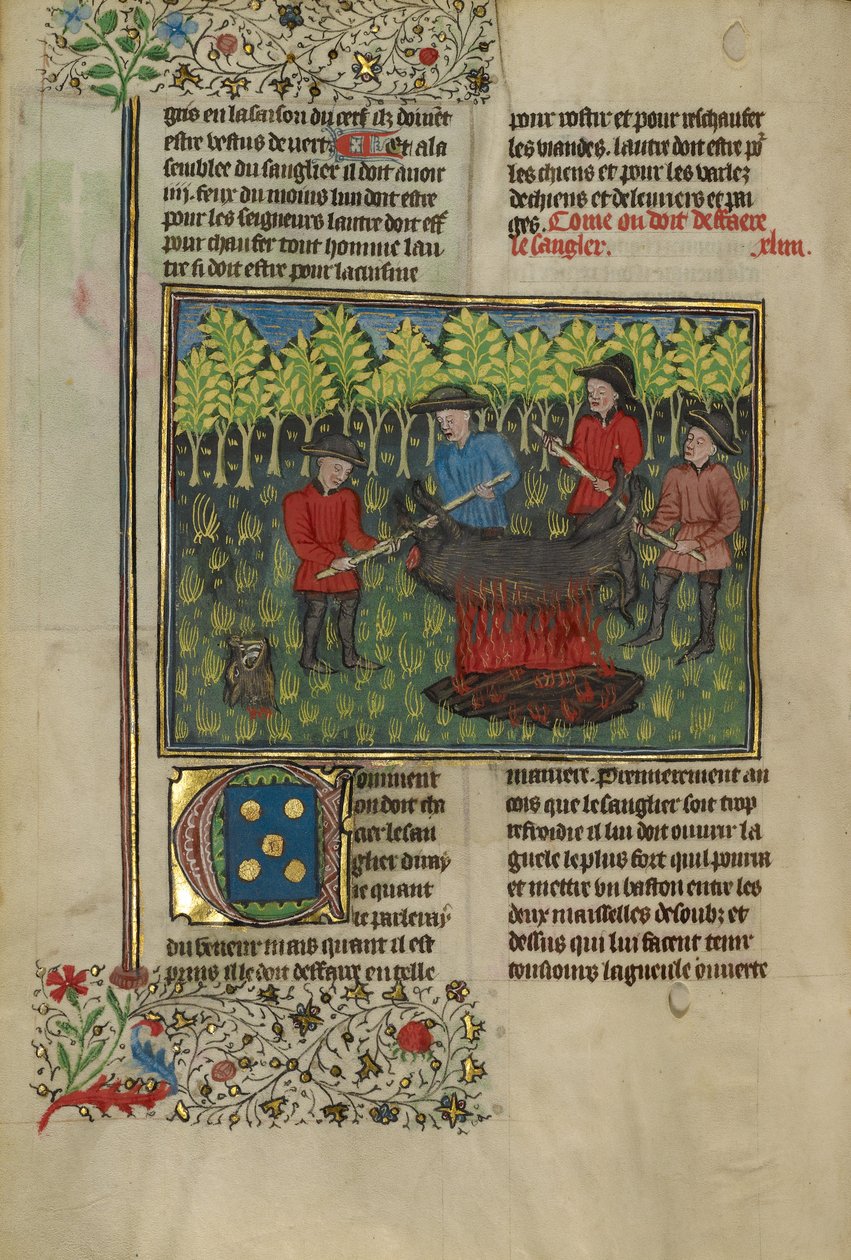 gris en la saison du cerf ilz doiuēt
estre vestus de vert Et a la
semblee du sanglier il doit auoir
iiij. feux du moins lun doit estre
pour les seigneurs lautre doit est̛
pour chaufer tout homme lau
tre si doit estre pour la cuisine
pour rostir et pour reschaufer
les viandes. lautre doit estre po᷑
les chiens et pour les varlez
de chiens et de leuriers et pai
ges. Cōme on doit deffaere
le sangler. .xliiii.
Comment
on doit cha
cier le san
glier diray
ie quant
ie parleray
du veneur mais quant il est
prins il le doit deffaire en telle
maniere. Premierement an
cois que le sanglier soit trop
refroidie il lui doit ouurir la
guele le plus fort quil pourra
et mettre vn baston entre les
deux maisselles desoubz et
dessus qui lui facent tenir
tousiours la gueule ouuerte